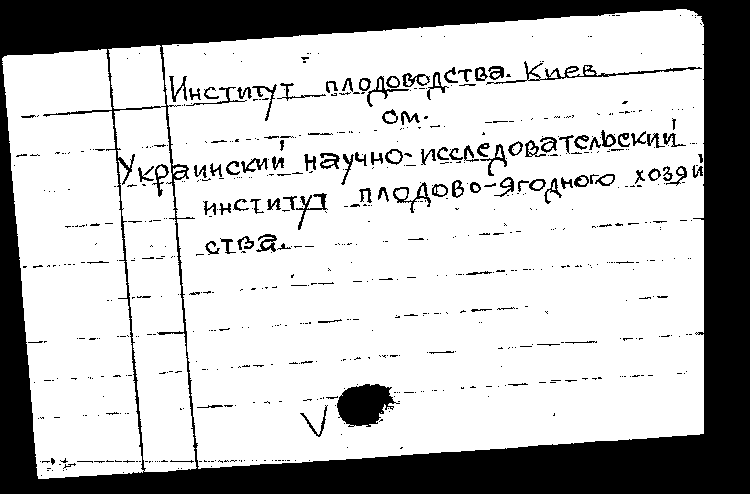 Институт плодоводства. Киев.
см.
Украинский научно-исследовательский
институт плодово-ягодного хозяй
ства.
V